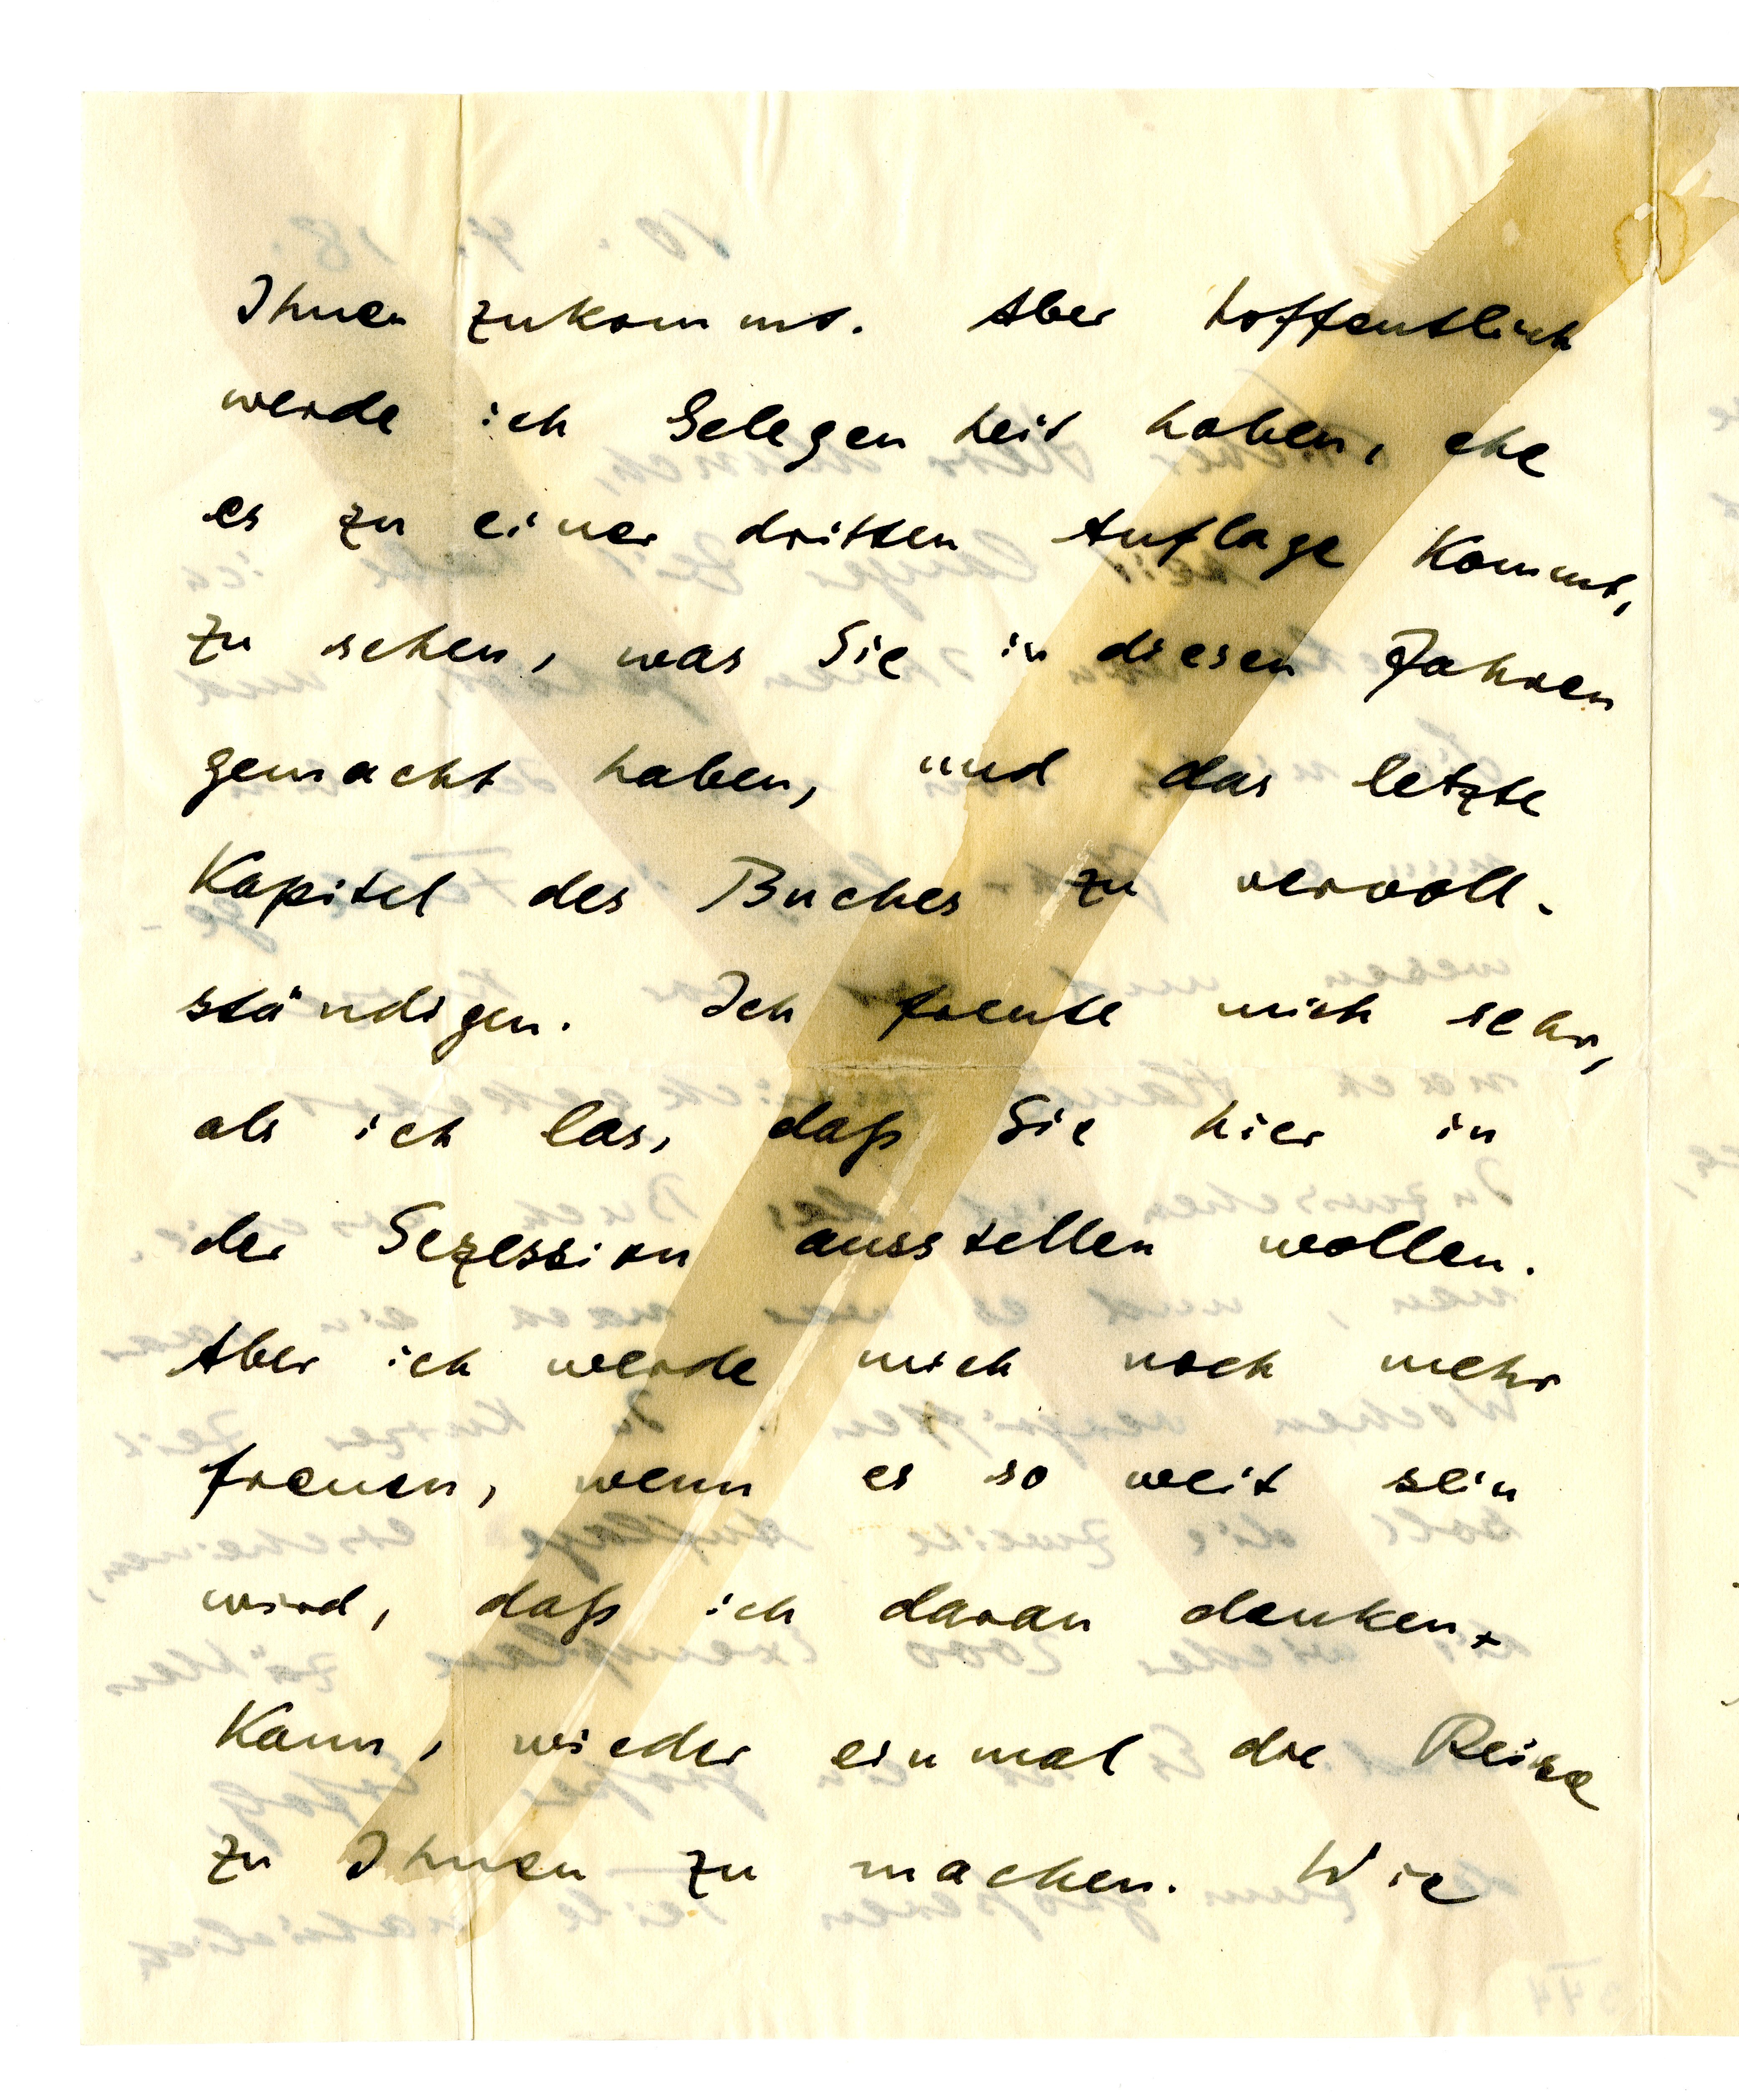 Ihnen zukommt. Aber hoffentlich
werde ich Gelegenheit haben, ehe
es zu einer dritten Auflage kommt,
zu sehen, was Sie in diesen Jahren
gemacht haben, und das letzte
Kapitel des Buches zu vervoll-
ständigen. Ich freute mich sehr,
als ich las, daß Sie hier in
der Sezession ausstellen wollen.
Aber ich werde mich noch mehr
freuen, wenn es so weit sein
wird, daß ich daran denken
kann, wieder einmal die Reise
zu Ihnen zu machen. Wie